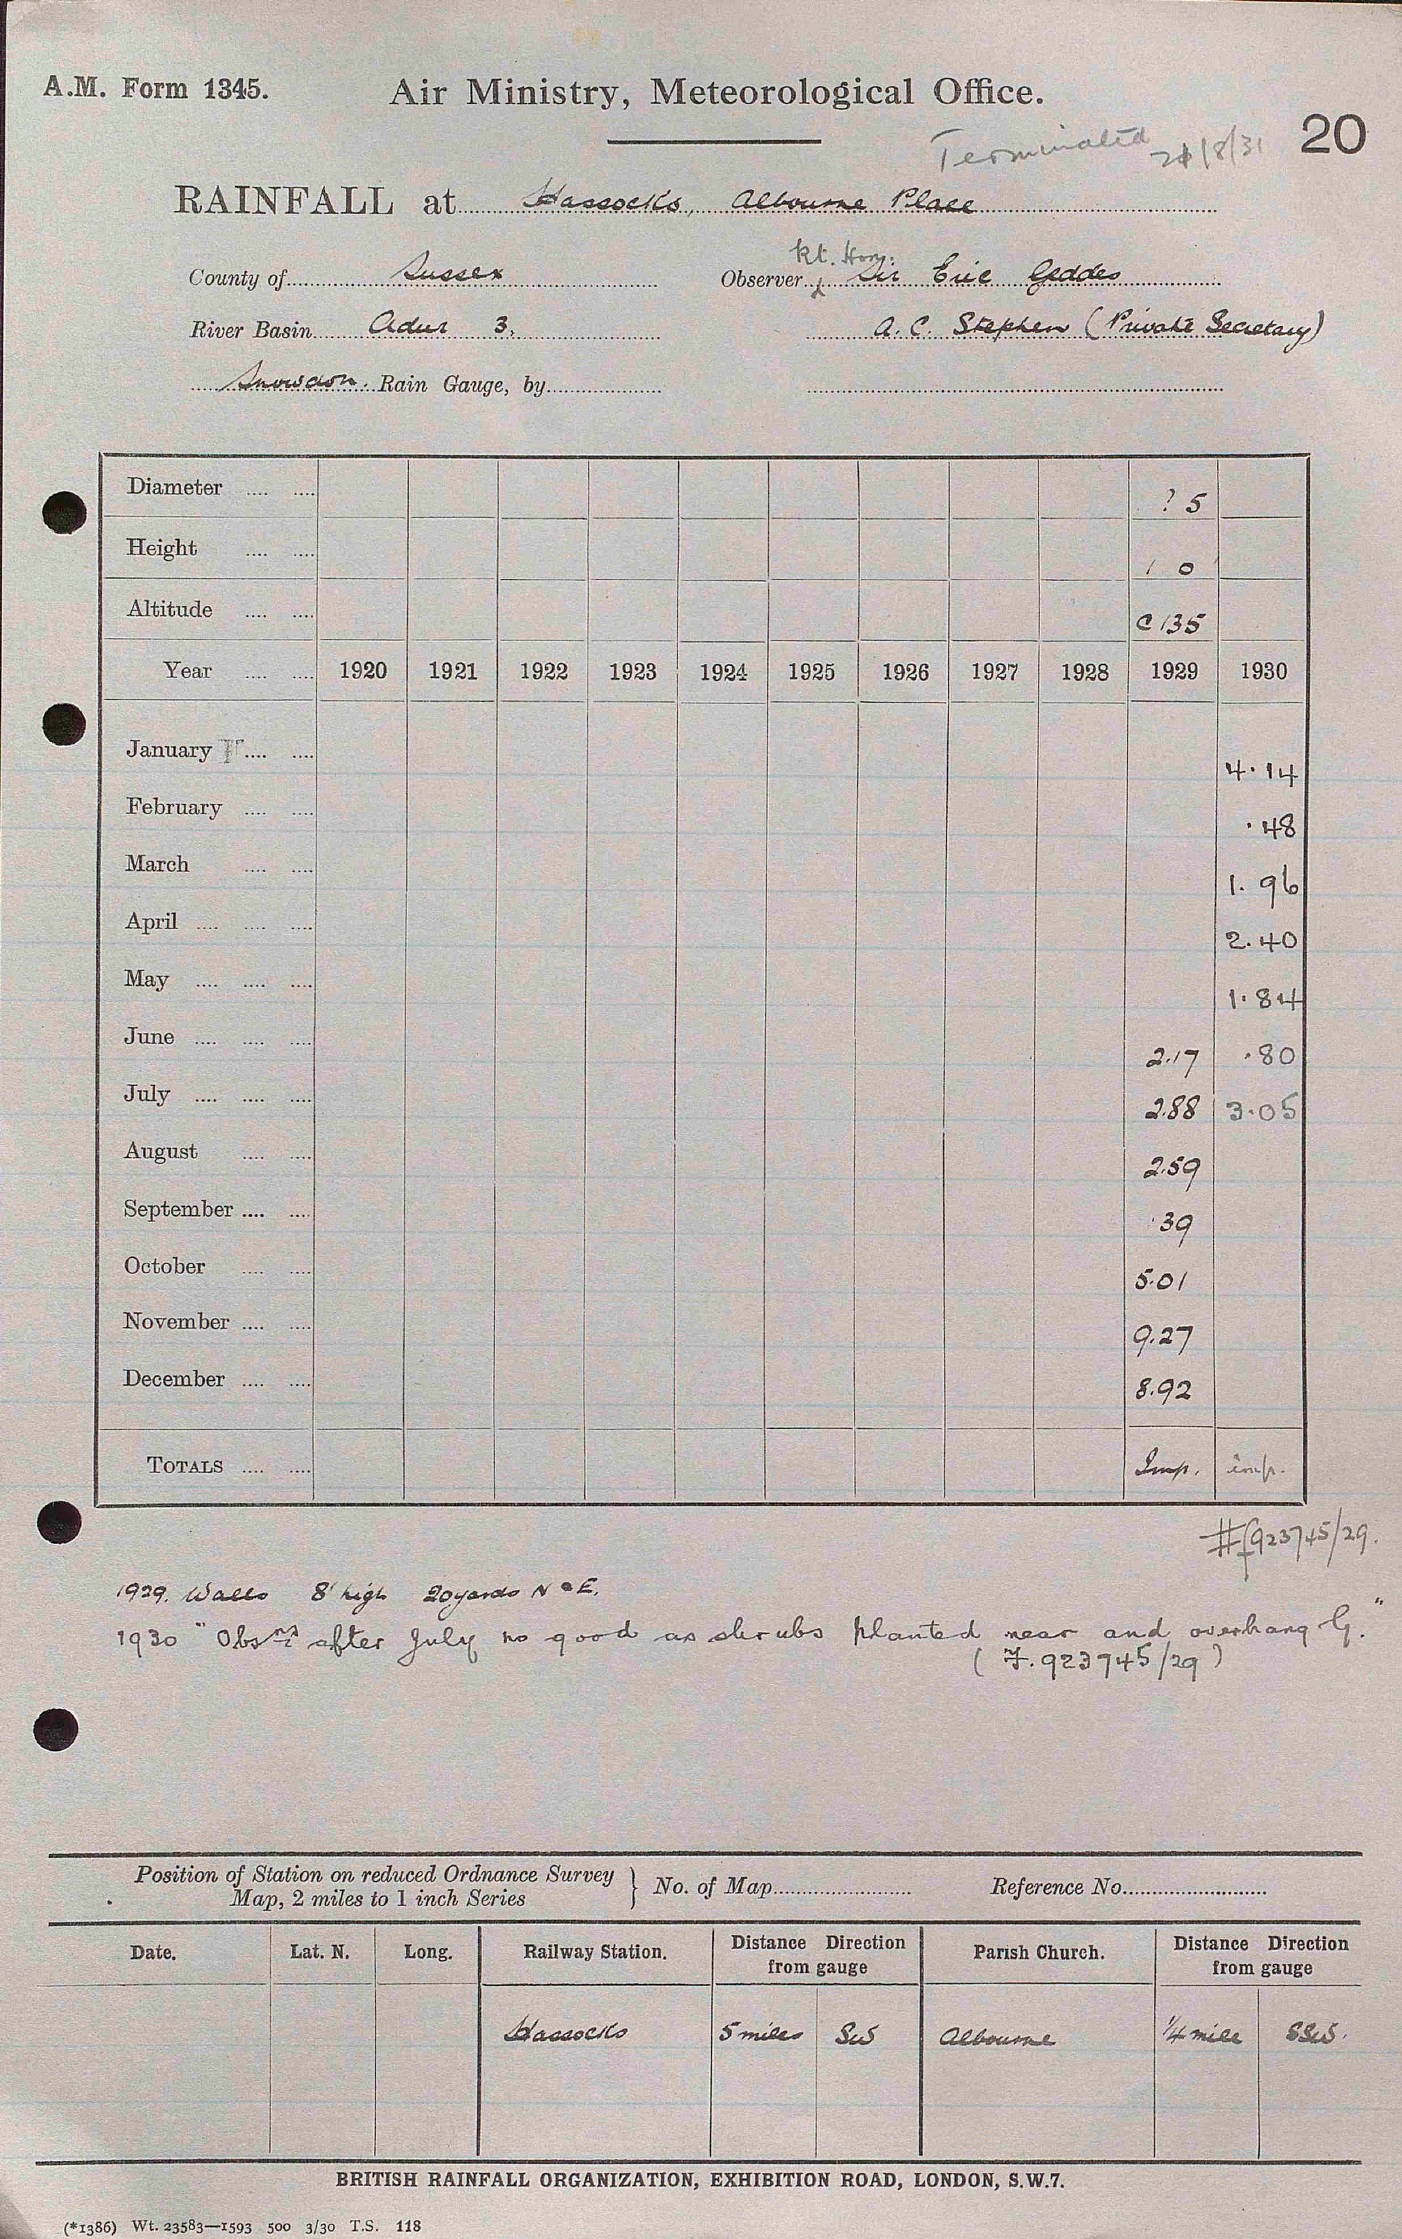 A.M. Form 1345. Air Ministry, Meteorological Office.
Terminated 21/8/31 20
RAINFALL at Hassocks, Albourne Place
Rt. Hon:
County of Sussex Observer Sir Eric Geddes
River Basin Adur 3. A. C. Stephen (Private Secretary)
Snowdon. Rain Gauge, by
Diameter .... .... ? 5
Height .... .... 1 0
Altitude .... .... C 135
Year .... .... 1920 1921 1922 1923 1924 1925 1926 1927 1928 1929 1930
January .... .... 4.14
February .... .... .48
March .... .... 1.96
April .... .... .... 2.40
May .... .... .... 1.84
June .... .... .... 2.17 .80
July .... .... .... 2.88 3.05
August .... .... 2.59
September .... .... .39
October .... .... 5.01
November .... .... 9.27
December .... .... 8.92
TOTALS .... .... Imp. imp.
923745/29.
1929. Walls 8' high 20 yards N & E.
1930 "Obsns after July no good as shrubs planted near and overhang G."
(F.923745/29)
Position of Station on reduced Ordnance Survey
Map, 2 miles to 1 inch Series } No. of Map Reference No.
Date. Lat. N. Long. Railway Station. Distance Direction from gauge Parish Church. Distance Direction from gauge
Hassocks 5 miles SW Albourne 1/4 mile SSW.
BRITISH RAINFALL ORGANIZATION, EXHIBITION ROAD, LONDON, S.W.7.
(*1386) Wt. 23583—1593 500 3/30 T.S. 118